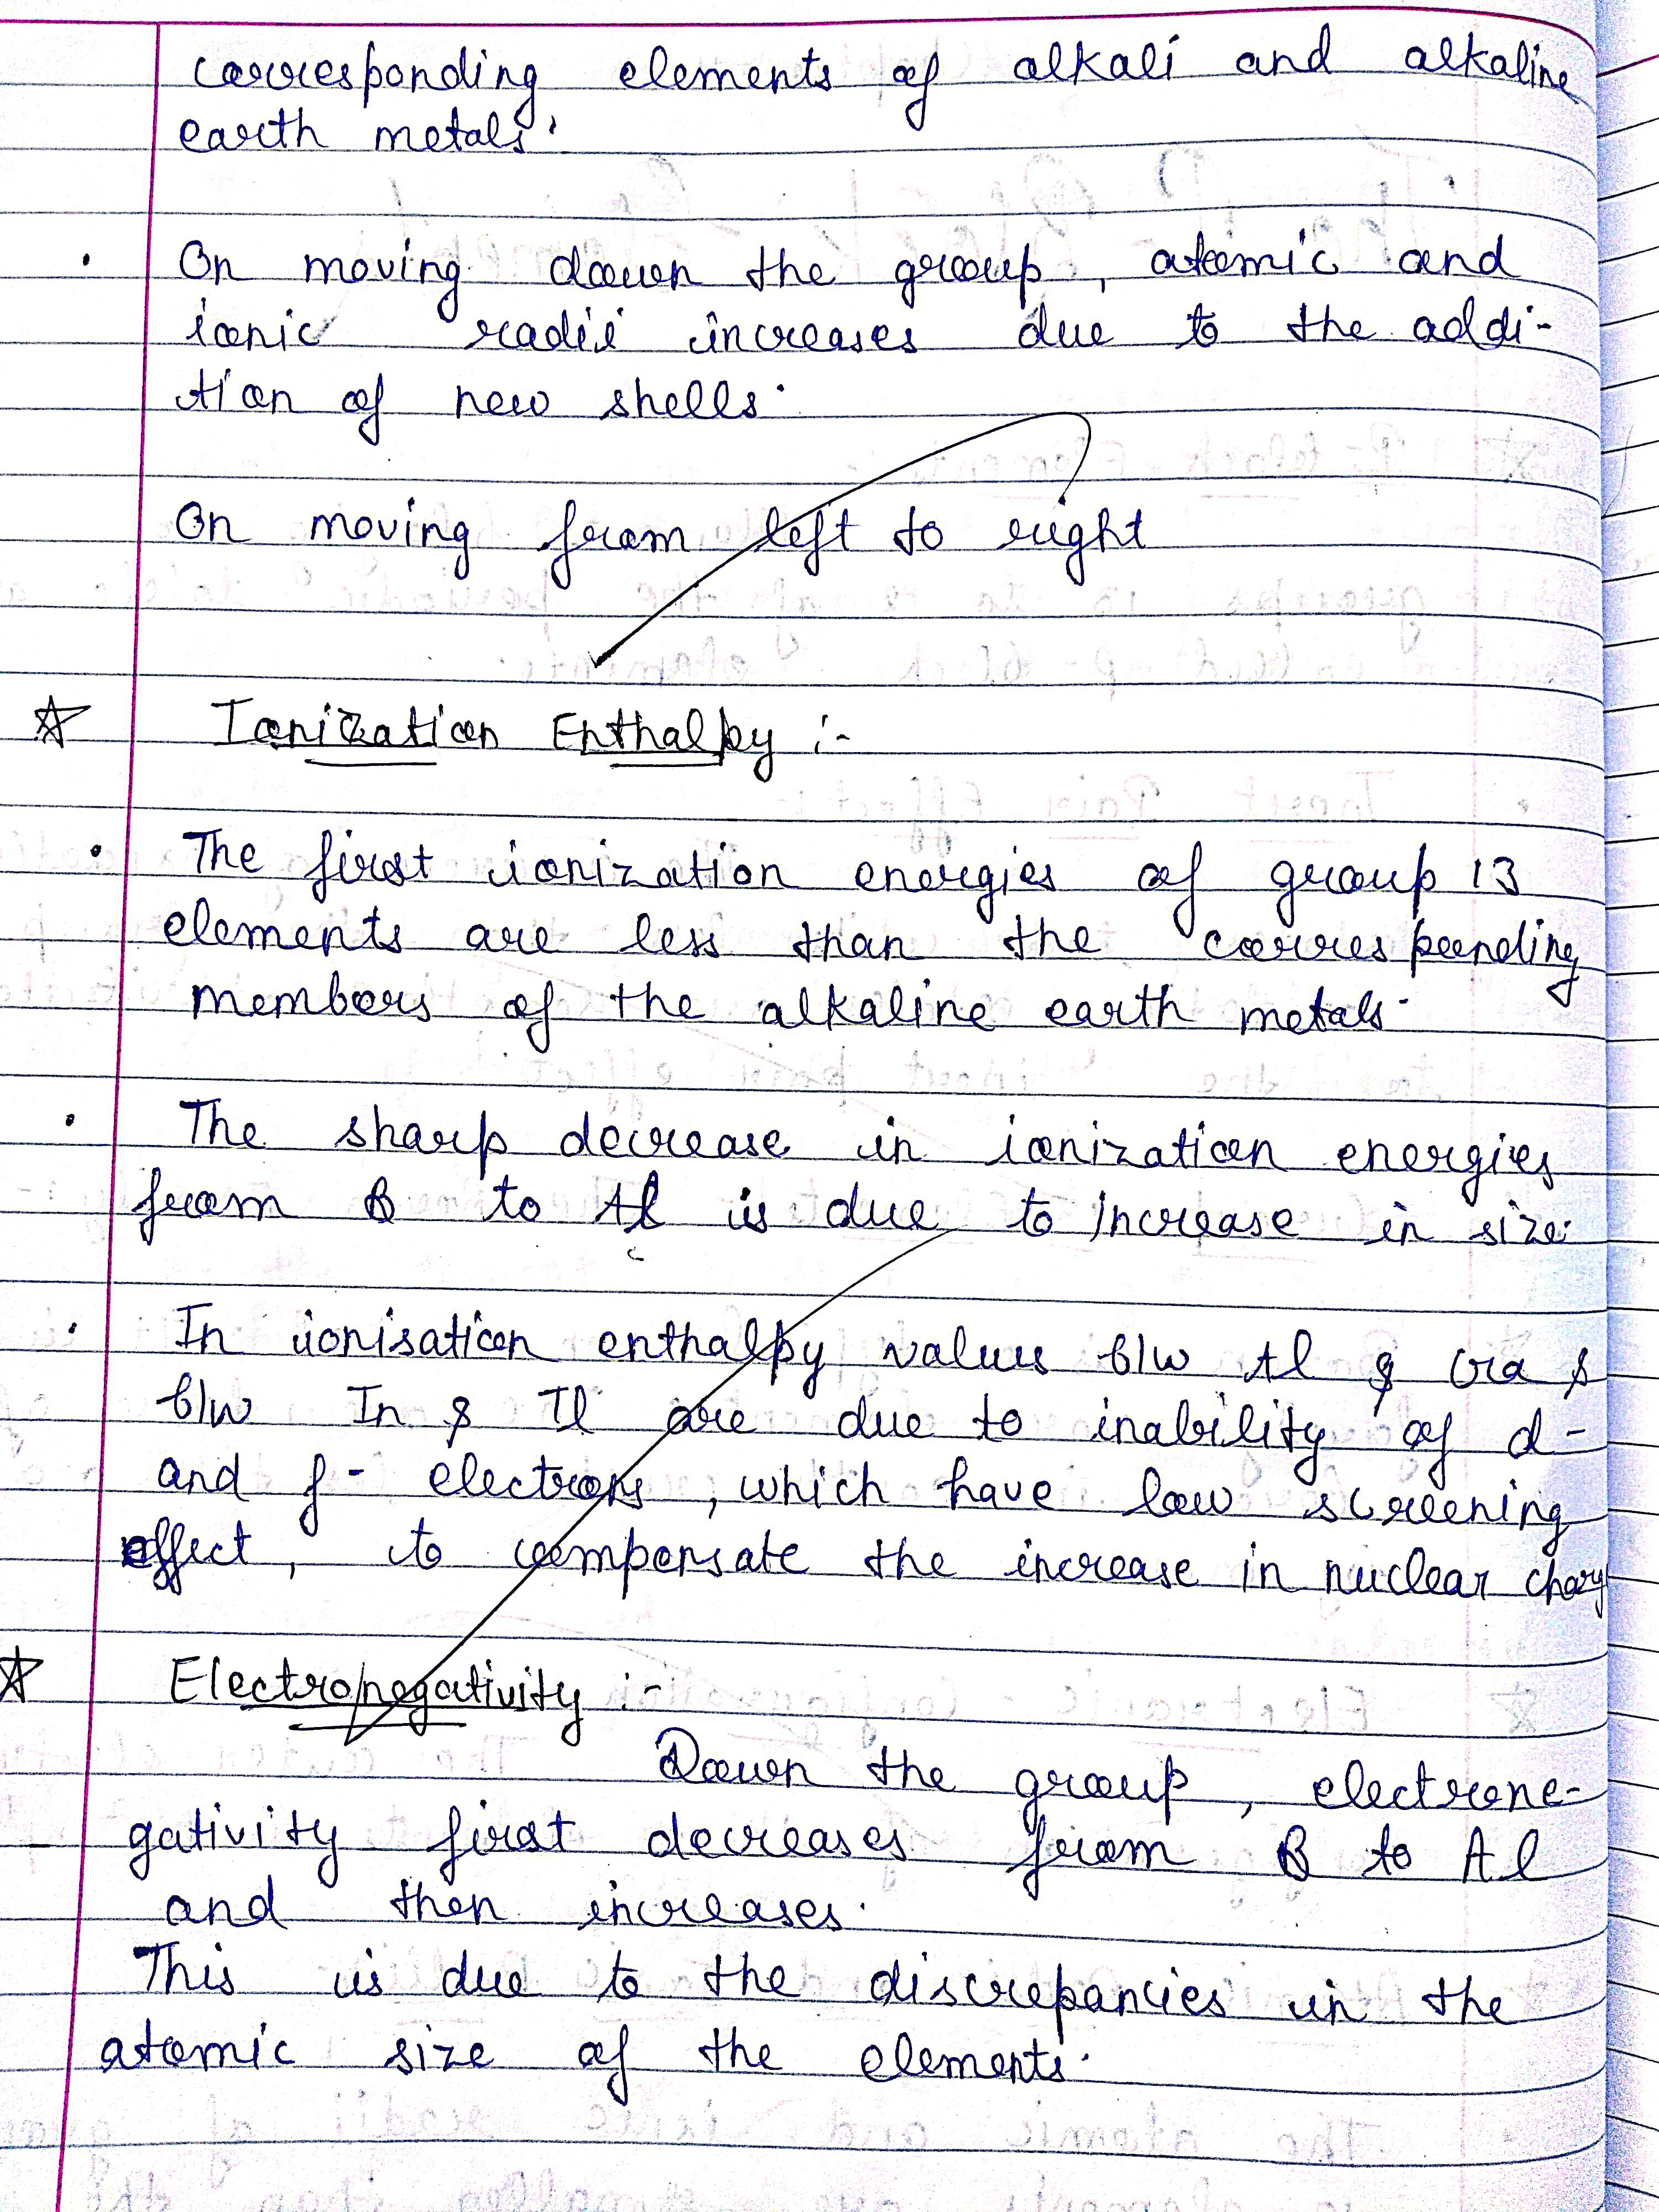 corresponding elements of alkali and alkaline
earth metals.
• On moving down the group, atomic and
ionic radii increases due to the addi-
tion of new shells.
On moving from left to right
☆ Ionization Enthalpy :-
• The first ionization energies of group 13
elements are less than the corresponding
members of the alkaline earth metals.
• The sharp decrease in ionization energies
from B to Al is due to increase in size.
• In ionisation enthalpy values b/w Al & Ga &
b/w In & Tl are due to inability of d-
and f- electrons, which have low screening
effect, to compensate the increase in nuclear charg
☆ Electronegativity :-
Down the group, electrone-
gativity first decreases from B to Al
and then increases.
This is due to the discrepancies in the
atomic size of the elements.